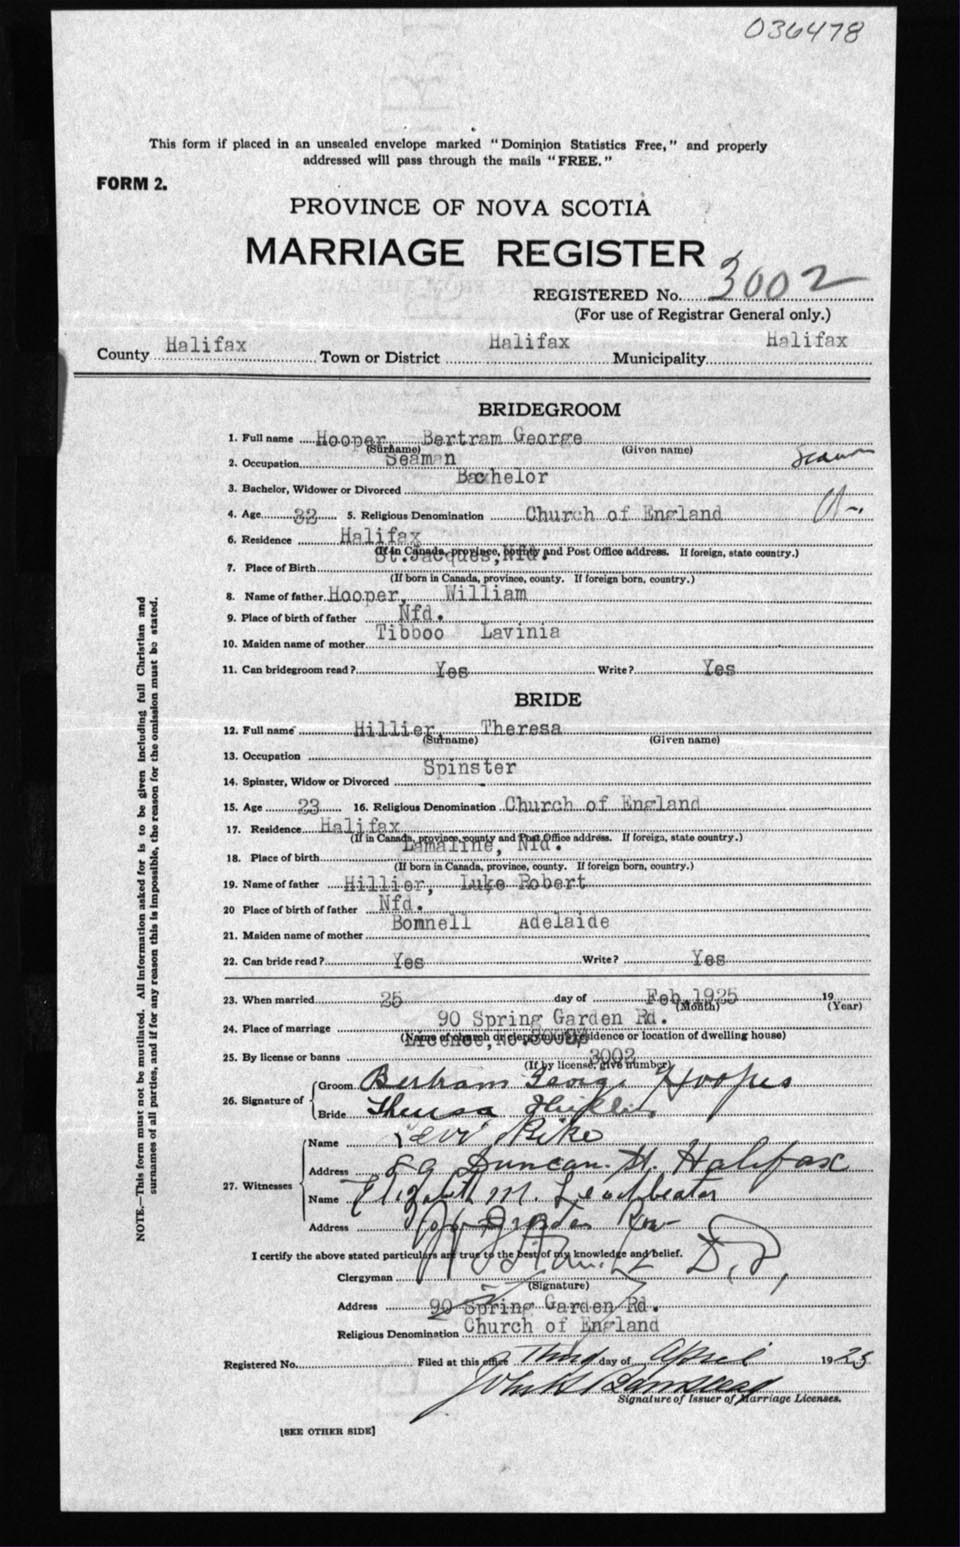 036478
This form if placed in an unsealed envelope marked "Dominion Statistics Free," and properly
addressed will pass through the mails "FREE."
FORM 2.
PROVINCE OF NOVA SCOTIA
MARRIAGE REGISTER
REGISTERED No. 3002
(For use of Registrar General only.)
County Halifax Town or District Halifax Municipality Halifax
BRIDEGROOM
1. Full name Hooper Bertram George
(Surname) (Given name)
2. Occupation Seaman
3. Bachelor, Widower or Divorced Bachelor
4. Age 32 5. Religious Denomination Church of England
6. Residence Halifax
(If in Canada, province, county and Post Office address. If foreign, state country.)
7. Place of Birth St. Jacques, Nfd.
(If born in Canada, province, county. If foreign born, country.)
8. Name of father Hooper, William
9. Place of birth of father Nfd.
10. Maiden name of mother Tibboo Lavinia
11. Can bridegroom read? Yes Write? Yes
BRIDE
12. Full name Hillier, Theresa
(Surname) (Given name)
13. Occupation
14. Spinster, Widow or Divorced Spinster
15. Age 23 16. Religious Denomination Church of England
17. Residence Halifax
(If in Canada, province, county and Post Office address. If foreign, state country.)
18. Place of birth Lamaline, Nfd.
(If born in Canada, province, county. If foreign born, country.)
19. Name of father Hillier, Luke Robert
20 Place of birth of father Nfd.
21. Maiden name of mother Bonnell Adelaide
22. Can bride read? Yes Write? Yes
23. When married 25 day of Feb. 1925 19
(Month) (Year)
24. Place of marriage 90 Spring Garden Rd.
(Name of church or clergyman's residence or location of dwelling house)
25. By license or banns License, No. 3002
(If by license, give number)
26. Signature of Groom Bertram George Hooper
Bride Theresa
27. Witnesses Name Levi Pike
Address 89 Duncan St. Halifax
Name Elizabeth M. Leadbeater
Address
I certify the above stated particulars are true to the best of my knowledge and belief.
Clergyman D.D.
(Signature)
Address 90 Spring Garden Rd.
Religious Denomination Church of England
Registered No. Filed at this office Third day of April 1925
Signature of Issuer of Marriage Licenses.
[SEE OTHER SIDE]
NOTE.—This form must not be mutilated. All information asked for is to be given including full Christian and
surnames of all parties, and if for any reason this is impossible, the reason for the omission must be stated.